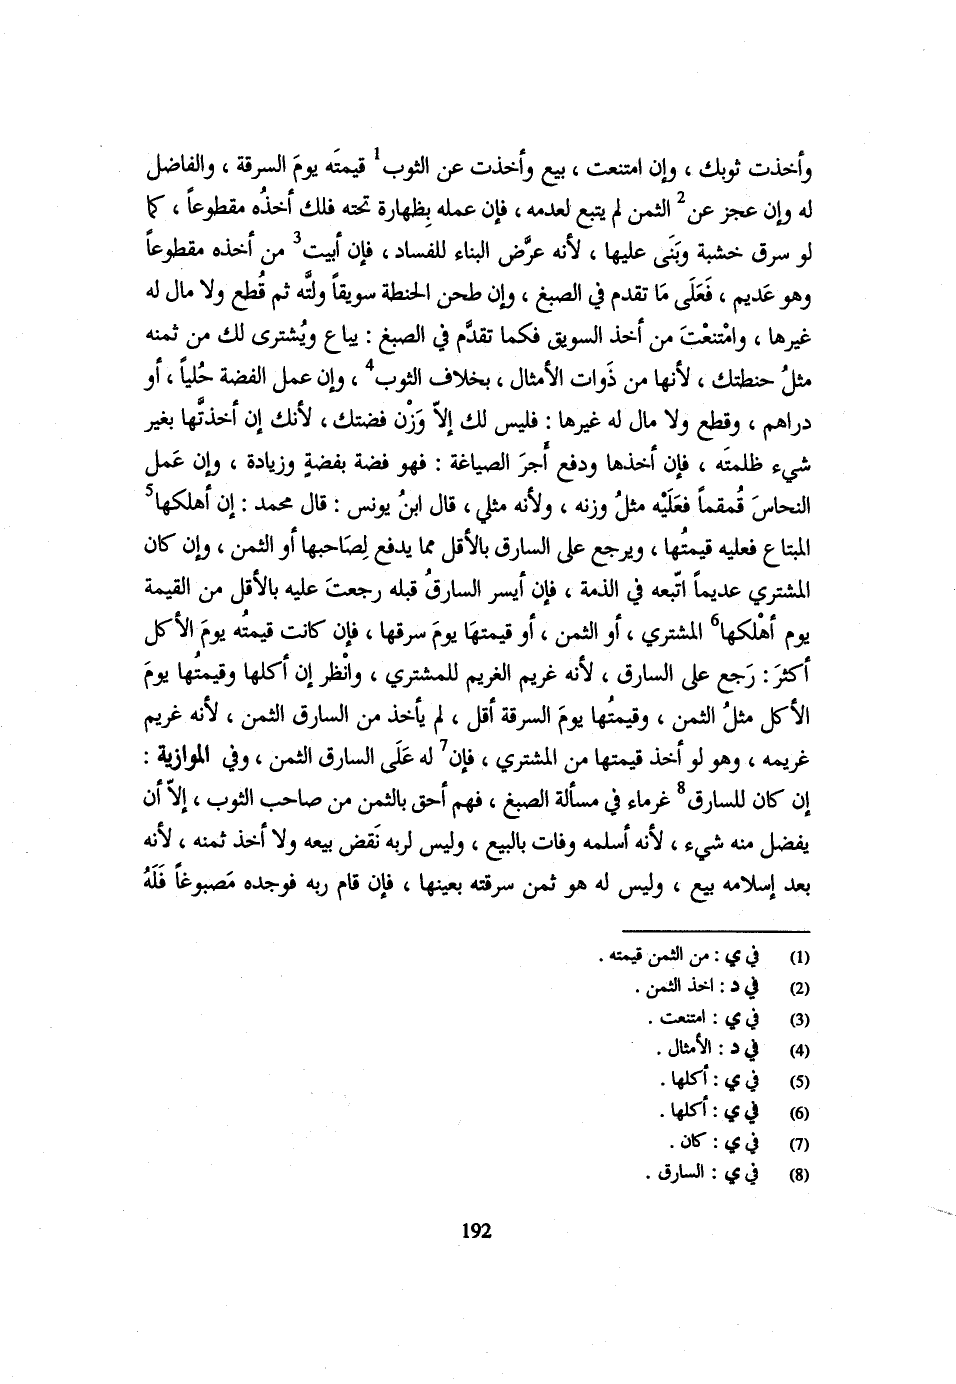 وأخذت ثوبك ، وإن امتنعت ، بيع وأخذت عن الثوب1 قيمتَه يومَ السرقة ، والفاضل
له وإن عجز عن2 الثمن لم يتبع لعدمه ، فإن عمله بِظهارة تحته فلك أخذُه مقطوعاً ، كما
لو سرق خشبة وبَنَى عليها ، لأنه عرَّض البناء للفساد ، فإن أبيت3 من أخذه مقطوعاً
وهو عَديم ، فَعَلَى مَا تقدم في الصبغ ، وإن طحن الحنطة سويقاً ولتَّه ثم قُطع ولا مال له
غيرها ، وامْتنعْتَ من أخذ السويق فكما تقدَّم في الصبغ : يباع ويُشترى لك من ثمنه
مثلُ حنطتك ، لأنها من ذَوات الأمثال ، بخلاف الثوب4 ، وإن عمل الفضة حُلياً ، أو
دراهم ، وقطع ولا مال له غيرها : فليس لك إلاّ وَزْن فضتك ، لأنك إن أخذتَّها بغير
شيء ظلمتَه ، فإن أخذها ودفع أجرَ الصياغة : فهو فضة بفضةٍ وزيادة ، وإن عَمل
النحاسَ قُمقماً فعَلَيْه مثلُ وزنه ، ولأنه مثلي ، قال ابنُ يونس : قال محمد : إن أهلكها5
المبتاع فعليه قيمتُها ، ويرجع على السارق بالأقل مما يدفع لِصَاحبها أو الثمن ، وإن كان
المشتري عديماً اتّبعه في الذمة ، فإن أيسر السارقُ قبله رجعتَ عليه بالأقل من القيمة
يوم أهْلكها6 المشتري ، أو الثمن ، أو قيمتهَا يومَ سرقها ، فإن كانت قيمتُه يومَ الأكل
أكثرَ : رَجع على السارق ، لأنه غريم الغريم للمشتري ، وانْظر إن أكلها وقيمتُها يومَ
الأكل مثلُ الثمن ، وقيمتُها يومَ السرقة أقل ، لم يأخذ من السارق الثمن ، لأنه غريم
غريمه ، وهو لو أخذ قيمتها من المشتري ، فإن7 له عَلَى السارق الثمن ، وفي الموازية :
إن كان للسارق8 غرماء في مسألة الصبغ ، فهم أحق بالثمن من صاحب الثوب ، إلاّ أن
يفضل منه شيء ، لأنه أسلمه وفات بالبيع ، وليس لربه نَقض بيعه ولا أخذ ثمنه ، لأنه
بعد إسلامه بيع ، وليس له هو ثمن سرقته بعينها ، فإن قام ربه فوجده مَصبوغاً فَلَهُ
(1) في ي : من الثمن قيمته .
(2) في د : اخذ الثمن .
(3) في ي : امتنعت .
(4) في د : الأمثال .
(5) في ي : أكلها .
(6) في ي : أكلها .
(7) في ي : كان .
(8) في ي : السارق .
192